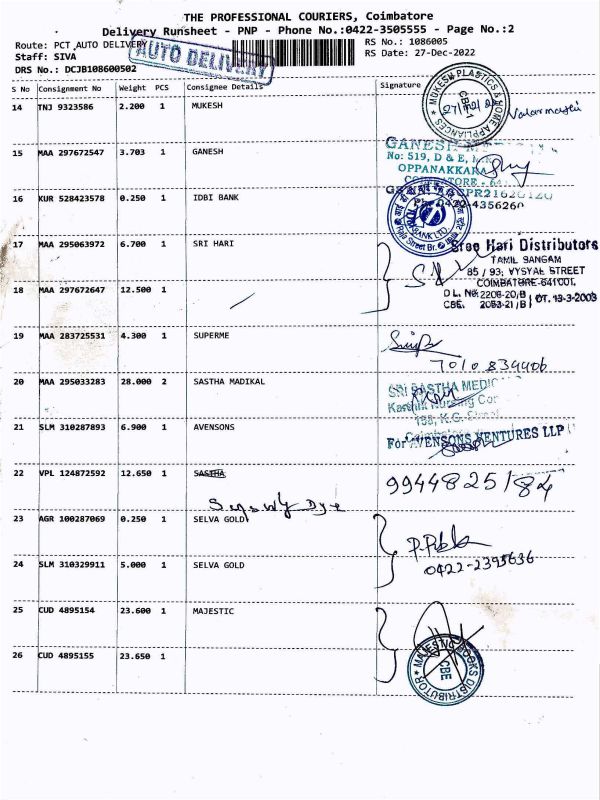 THE PROFESSIONAL COURIERS, Coimbatore
Delivery Runsheet - PNP - Phone No.:0422-3505555 - Page No.:2
Route: PCT AUTO DELIVERY
AUTO DELIVERY
RS No.: 1086005
Staff: SIVA
RS Date: 27-Dec-2022
DRS No.: DCJB108600502
S No Consignment No Weight PCS Consignee Details Signature
14 TNJ 9323586 2.200 1 MUKESH
MUKESH PLASTICS & HOME APPLIANCES
CBE
15 MAA 297672547 3.703 1 GANESH
GANESH
No: 519, D & E,
OPPANAKKARA
16 KUR 528423578 0.250 1 IDBI BANK
0422-4356260
BANK LTD.
17 MAA 295063972 6.700 1 SRI HARI
Sree Hari Distributors
TAMIL SANGAM
85 / 93, VYSYAL STREET
COIMBATORE-641001.
18 MAA 297672647 12.500 1
D L. No: 2208-20/B
CBE. 2083-21/B
DT. 13-3-2003
19 MAA 283725531 4.300 1 SUPERME
7010834406
20 MAA 295033283 28.000 2 SASTHA MADIKAL
SRI SASTHA MEDIC
21 SLM 310287893 6.900 1 AVENSONS
For AVENSONS VENTURES LLP
22 VPL 124872592 12.650 1 SASTHA
9944825184
23 AGR 100287069 0.250 1 SELVA GOLD
24 SLM 310329911 5.000 1 SELVA GOLD
0422-2395636
25 CUD 4895154 23.600 1 MAJESTIC
26 CUD 4895155 23.650 1
MAJESTIC BOOKS DISTRIBUTOR
CBE